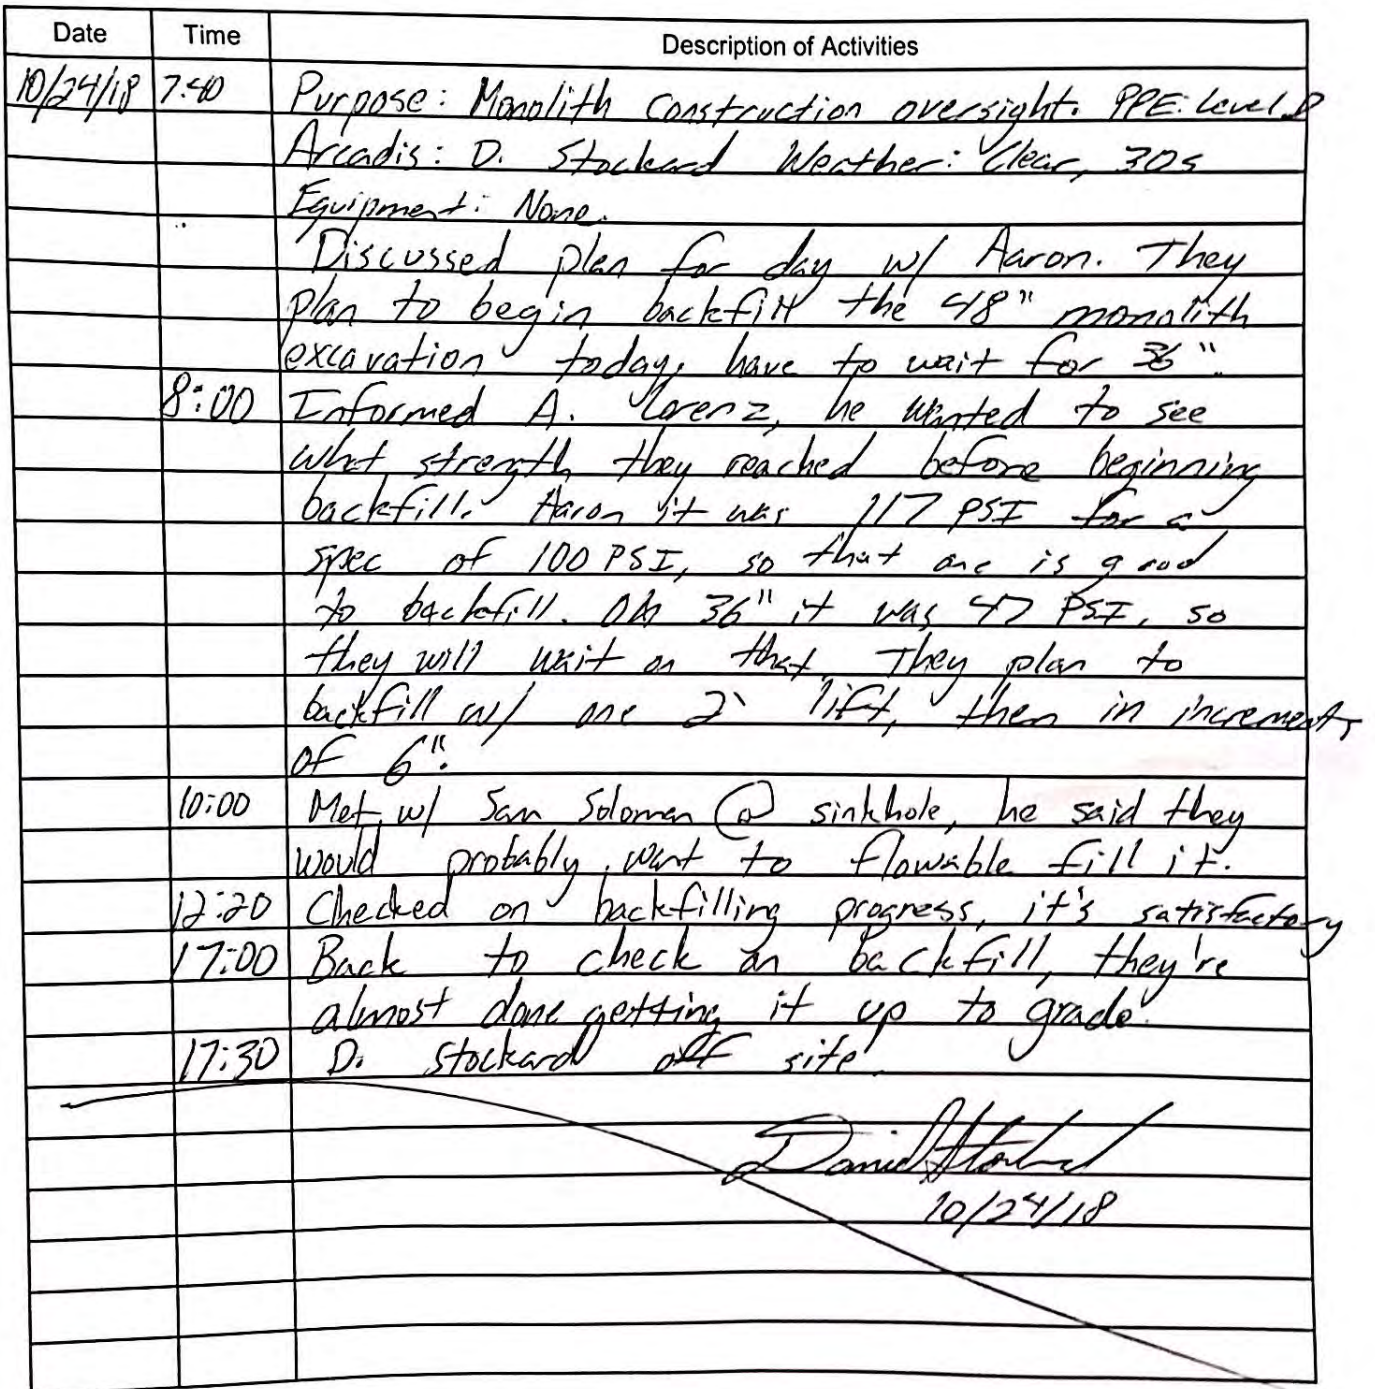 Date Time Description of Activities
10/24/18 7:40 Purpose: Monolith Construction oversight. PPE: Level D
Arcadis: D. Stockard Weather: Clear, 30s
Equipment: None.
Discussed plan for day w/ Aaron. They
plan to begin backfill the 48" monolith
excavation today, have to wait for 36".
8:00 Informed A. Lorenz, he wanted to see
what strength they reached before beginning
backfill. Aaron it was 117 PSI for a
spec of 100 PSI, so that one is good
to backfill. On 36" it was 47 PSI, so
they will wait on that. They plan to
backfill w/ one 2' lift, then in increments
of 6".
10:00 Met w/ Sam Soloman @ sinkhole, he said they
would probably want to flowable fill it.
12:20 Checked on backfilling progress, it's satisfactory
17:00 Back to check on backfill, they're
almost done getting it up to grade.
17:30 D. Stockard off site.
Daniel Stockard
10/24/18